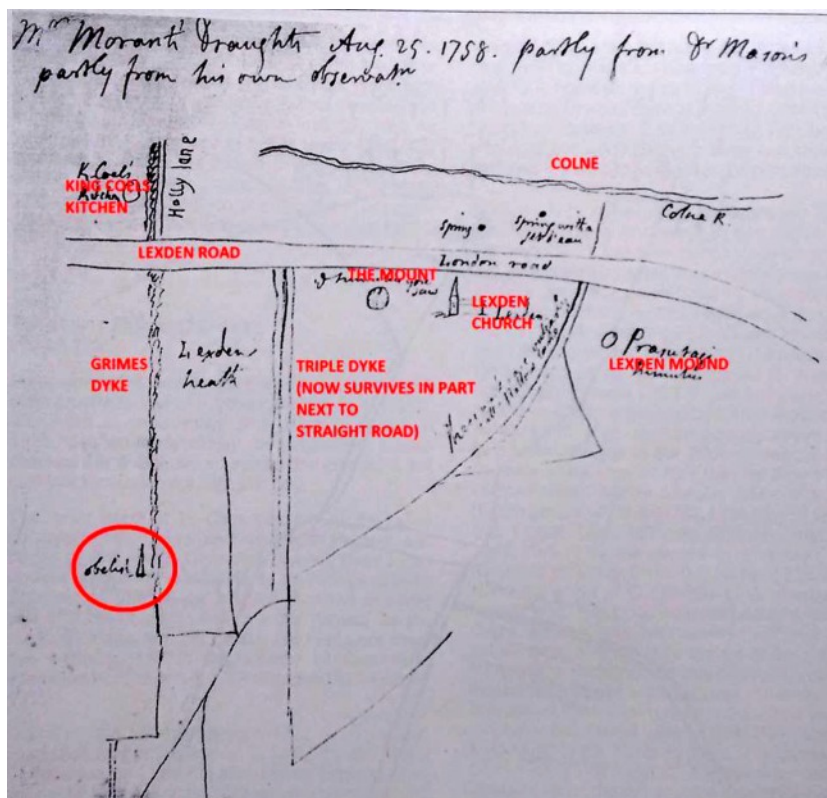 Mr Morant's Draughts Aug. 25. 1758. partly from Dr Mason's
partly from his own observatn
K. Coel's
Kitchen
KING COELS
KITCHEN
Holly lane
COLNE
Colne R.
Spring
Spring with a
LEXDEN ROAD
London road
THE MOUNT
LEXDEN
CHURCH
Lexden
GRIMES
DYKE
Lexden
heath
TRIPLE DYKE
(NOW SURVIVES IN PART
NEXT TO
STRAIGHT ROAD)
LEXDEN MOUND
obelisk